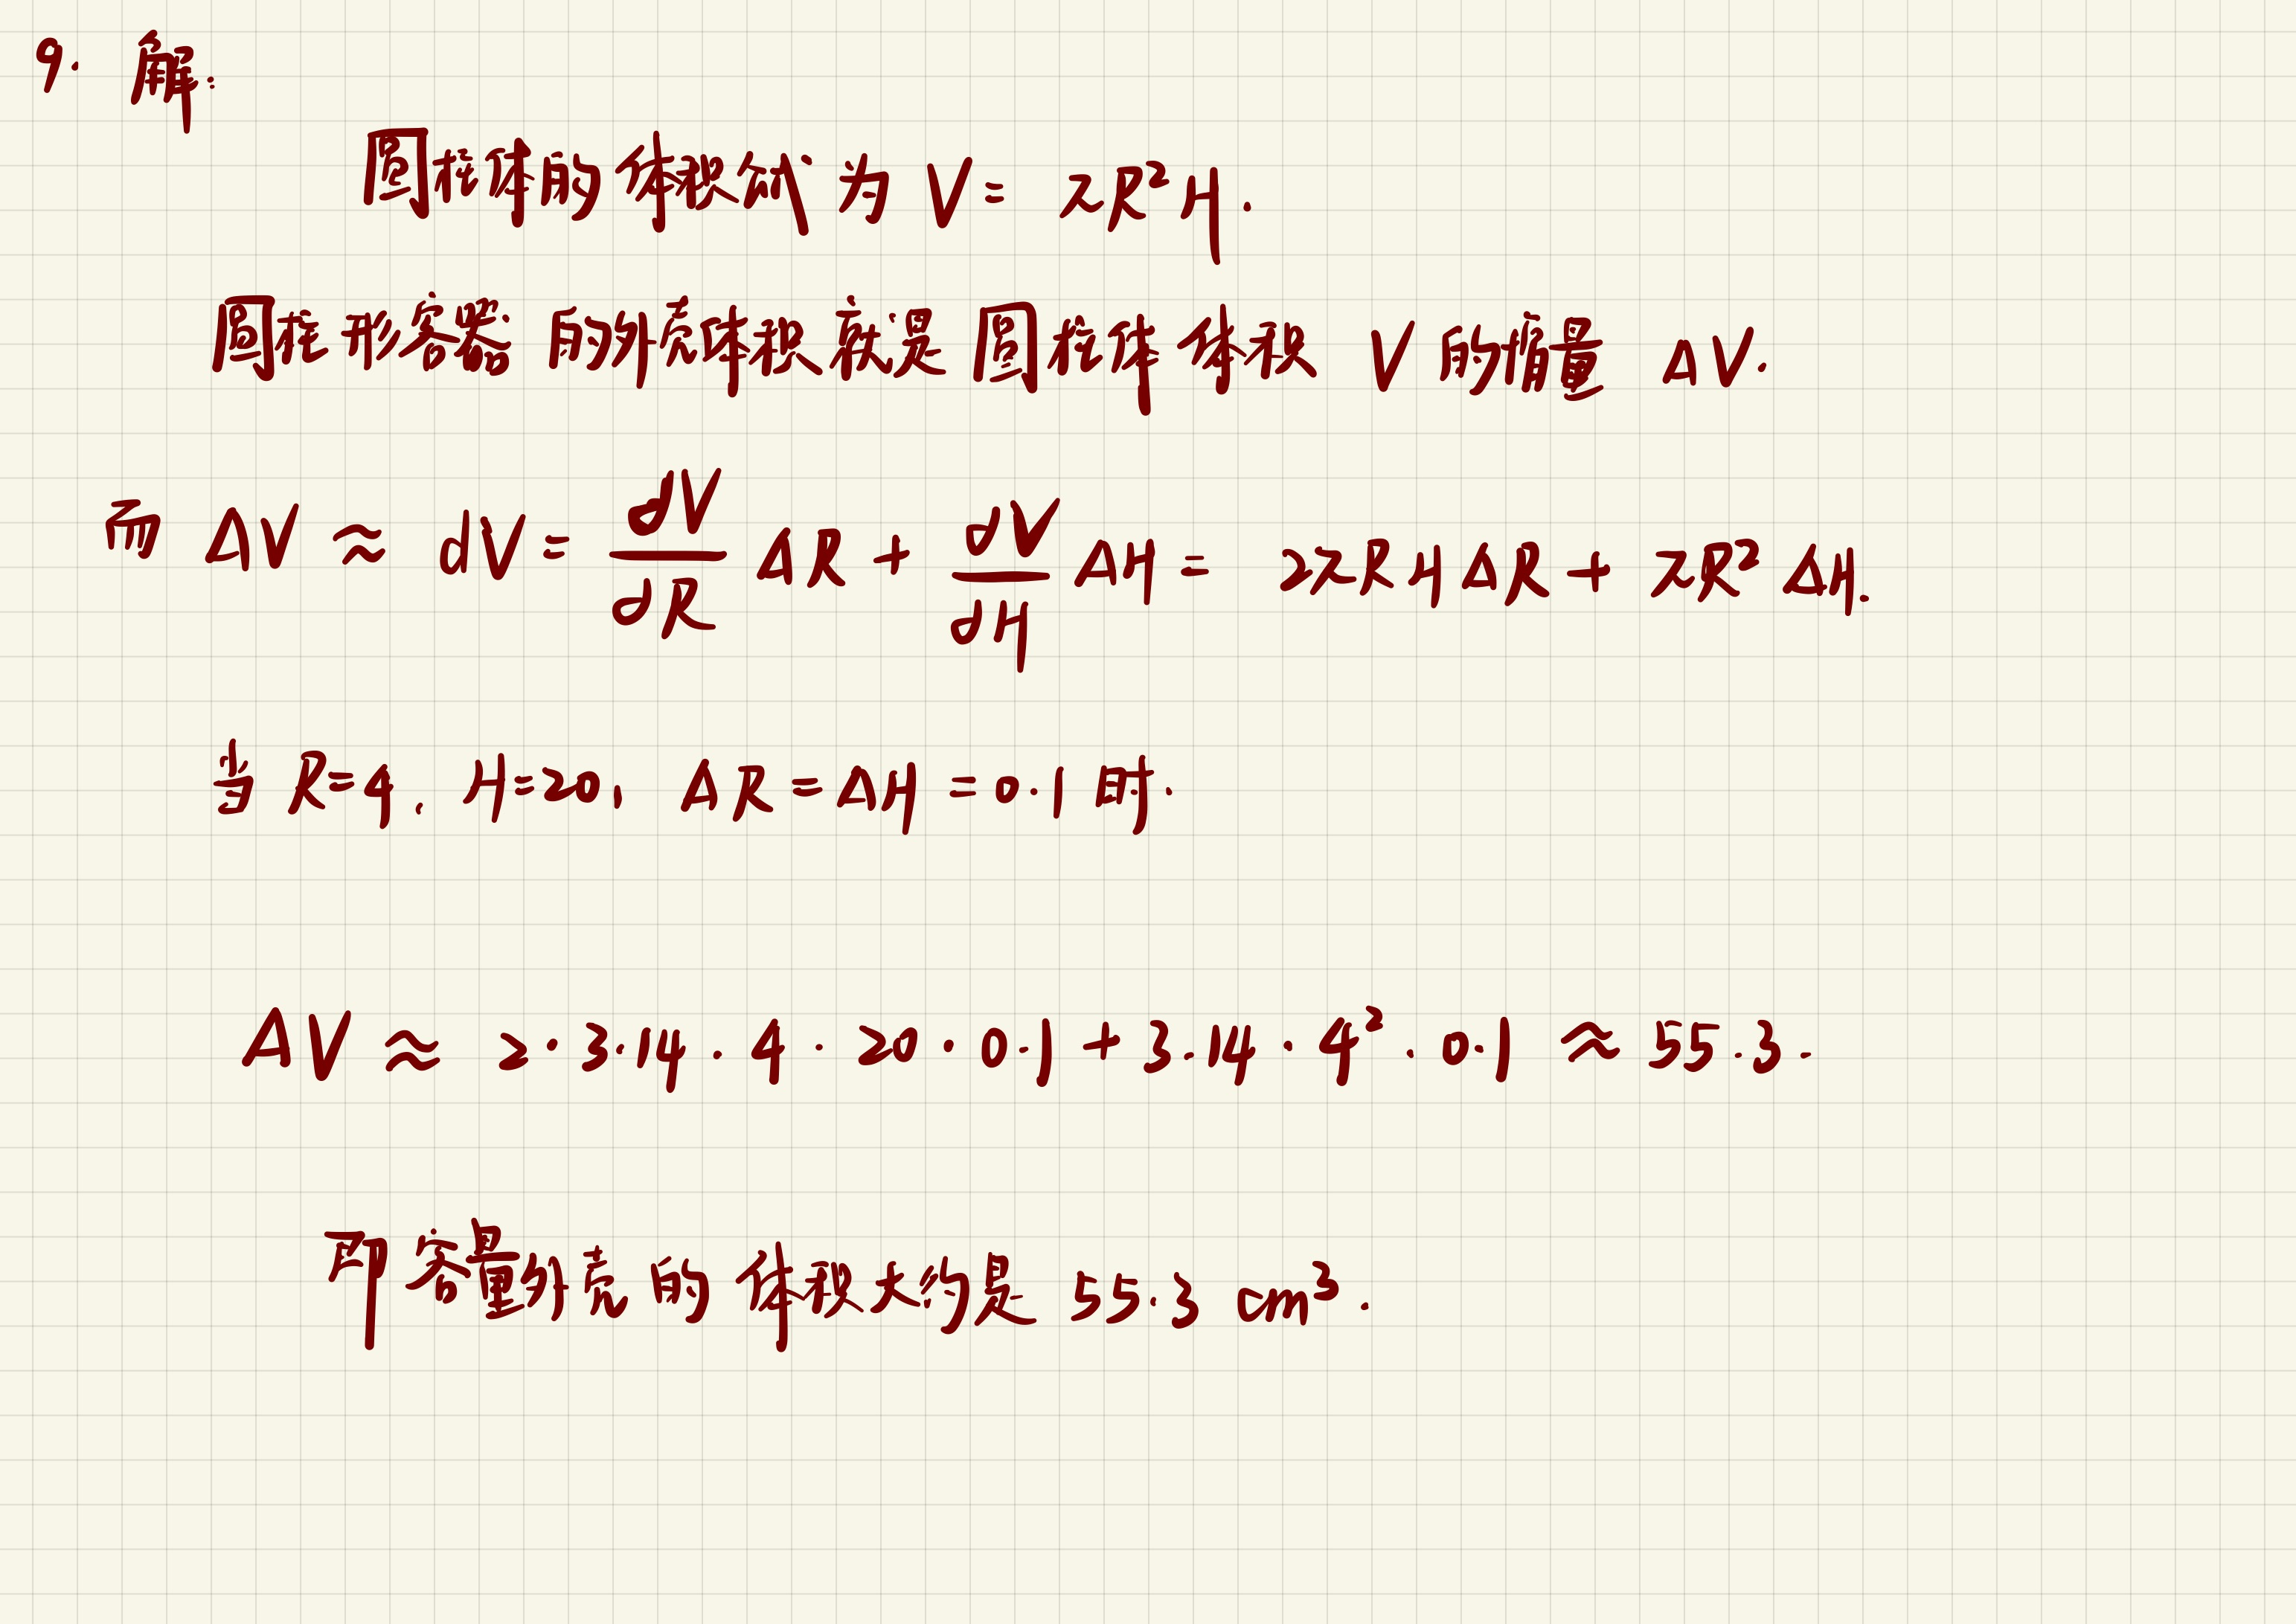 9. 解:
圆柱体的体积公式为 V= πR²H.
圆柱形容器的外壳体积就是圆柱体体积 V 的增量 ΔV.
而 ΔV ≈ dV= ∂V/∂R ΔR + ∂V/∂H ΔH = 2πRHΔR + πR² ΔH.
当 R=4, H=20, ΔR=ΔH=0.1 时.
ΔV ≈ 2·3.14·4·20·0.1+3.14·4²·0.1 ≈ 55.3.
即容量外壳的体积大约是 55.3 cm³.